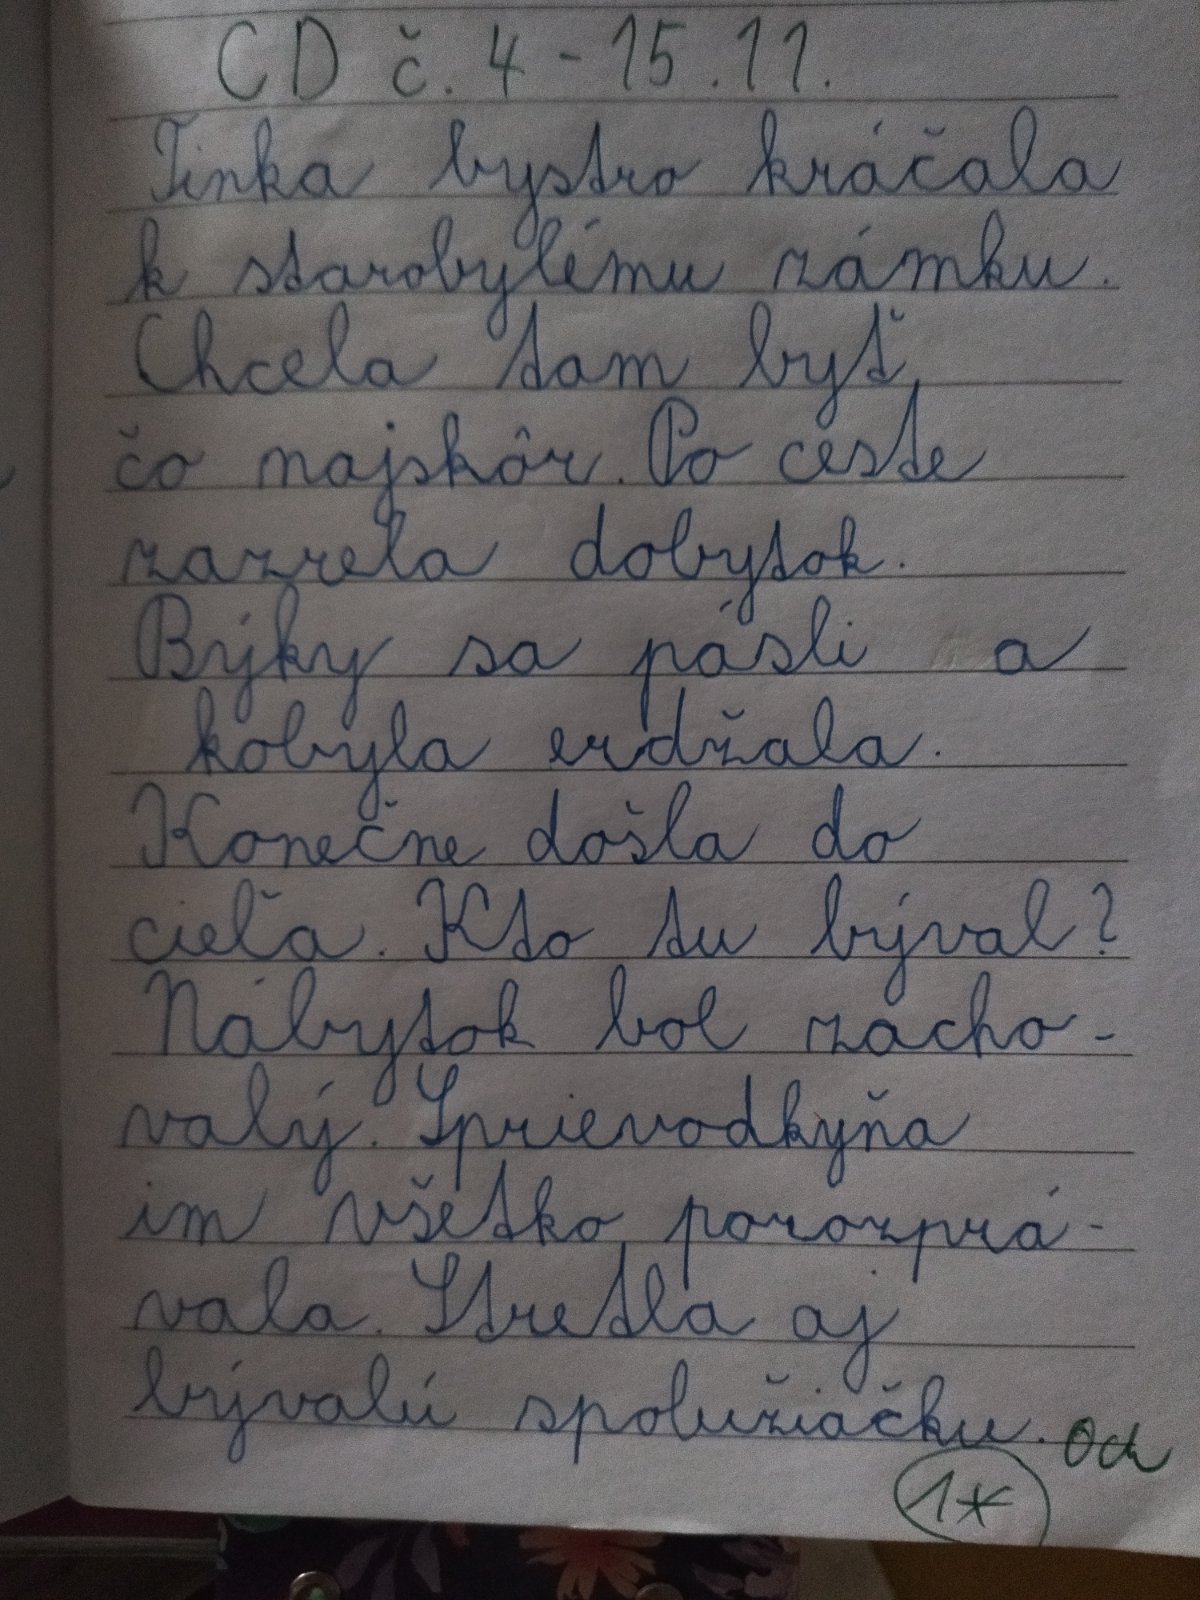 CD č. 4 - 15.11.
Tinka bystro kráčala
k starobylému zámku.
Chcela tam byť
čo najskôr. Po ceste
zazrela dobytok.
Býky sa pásli a
kobyla erdžala.
Konečne došla do
cieľa. Kto tu býval?
Nábytok bol zacho-
valý. Sprievodkyňa
im všetko porozprá-
vala. Stretla aj
bývalú spolužiačku.
1*